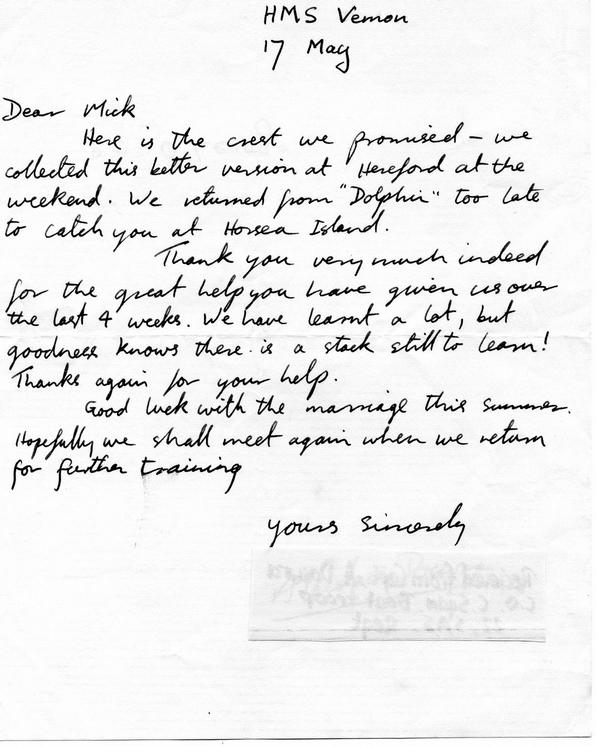 HMS Vernon
17 May
Dear Mick
Here is the crest we promised – we
collected this better version at Hereford at the
weekend. We returned from "Dolphin" too late
to catch you at Horsea Island.
Thank you very much indeed
for the great help you have given us over
the last 4 weeks. We have learnt a lot, but
goodness knows there is a stack still to learn!
Thanks again for your help.
Good luck with the marriage this summer.
Hopefully we shall meet again when we return
for further training
Yours Sincerely